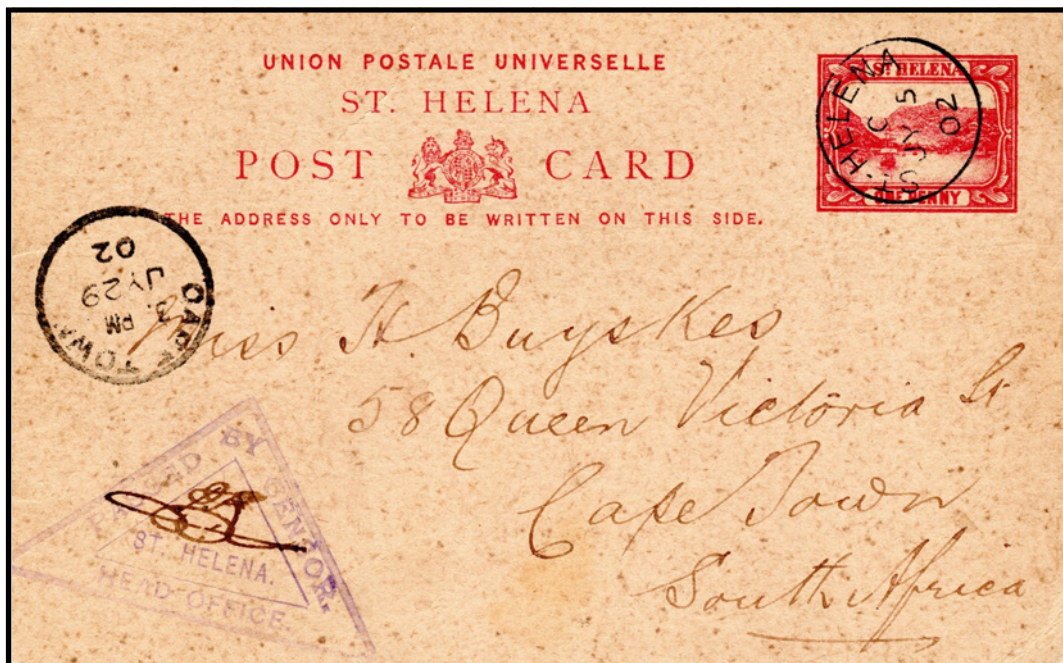 UNION POSTALE UNIVERSELLE
ST. HELENA
POST CARD
THE ADDRESS ONLY TO BE WRITTEN ON THIS SIDE.
ST HELENA
ONE PENNY
ST. HELENA
C
JY 5
02
CAPE TOWN
3. PM
JY 29
02
Miss H. Buyskes
58 Queen Victoria St
Cape Town
South Africa
PASSED BY CENSOR.
ST. HELENA.
HEAD OFFICE.